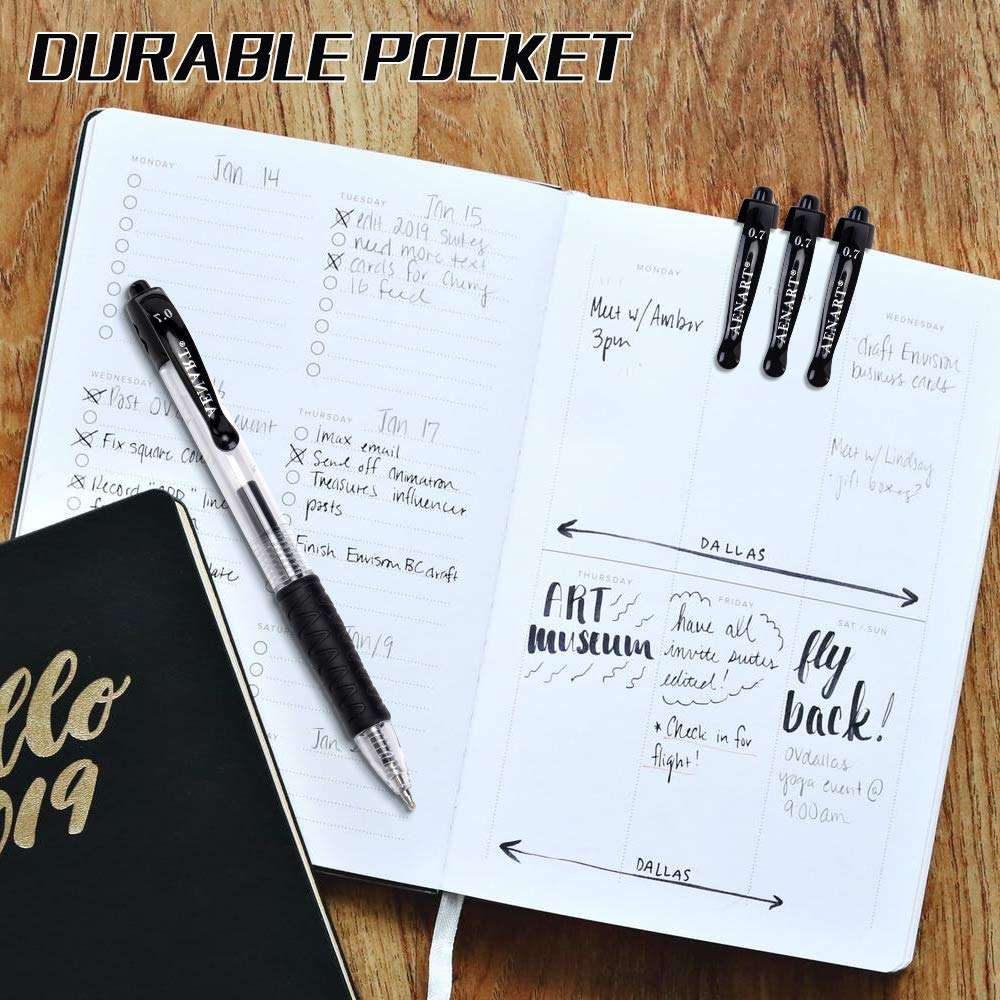 DURABLE POCKET
MONDAY
Jan 14
TUESDAY
Jan 15
edit 2019 suites
need more text
cards for cherry
1b. feed
WEDNESDAY
Post OV
Fix square
Record
line
THURSDAY
Jan 17
imax email
Send off animation
Treasures influencer
posts
Finish Envision BC draft
Jan
0.7
AENART®
hello
2019
MONDAY
Meet w/ Amber
3pm
0.7
AENART®
0.7
AENART®
0.7
AENART®
WEDNESDAY
draft Envision
business cards
Meet w/ Lindsay
gift boxes?
DALLAS
THURSDAY
ART
museum
FRIDAY
have all
invite suites
edited!
* Check in for
flight!
SAT / SUN
fly
back!
OVdallas
yoga event @
9:00am
DALLAS